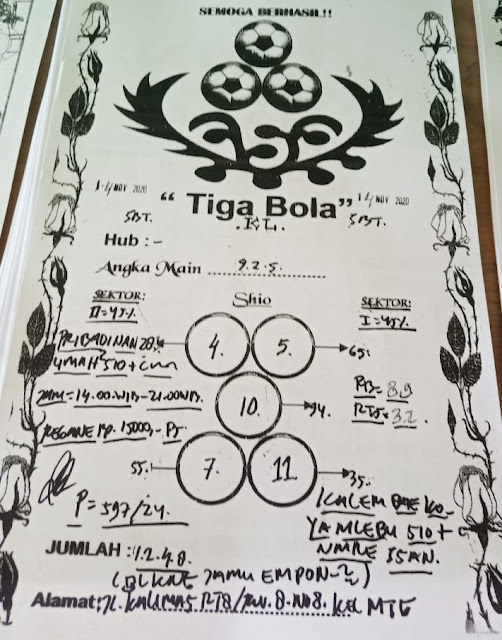 SEMOGA BERHASIL!!
14 NOV 2020
SBT.
“ Tiga Bola”
.KL.
14 NOV 2020
SBT.
Hub : -
Angka Main 9.2.5.
SEKTOR:
II = 45%
Shio
SEKTOR:
I = 45%
PRIBADINAN
4.
5.
65.
UMAH2 510 +
JAM = 14.00.WIB - 21.00WIB.
10.
94.
PB = 89
RTS = 32.
REGANE RP. 15000,-
55.
7.
11.
35.
P = 597/24.
KALEM BAE KO-
YA MLEBU 510 +
NMRE 35AN.
JUMLAH : 1.2.4.8.
JAMU EMPON-2
Alamat: JL. KALIMAS RT8/RW.8.NO8. KEL MTE